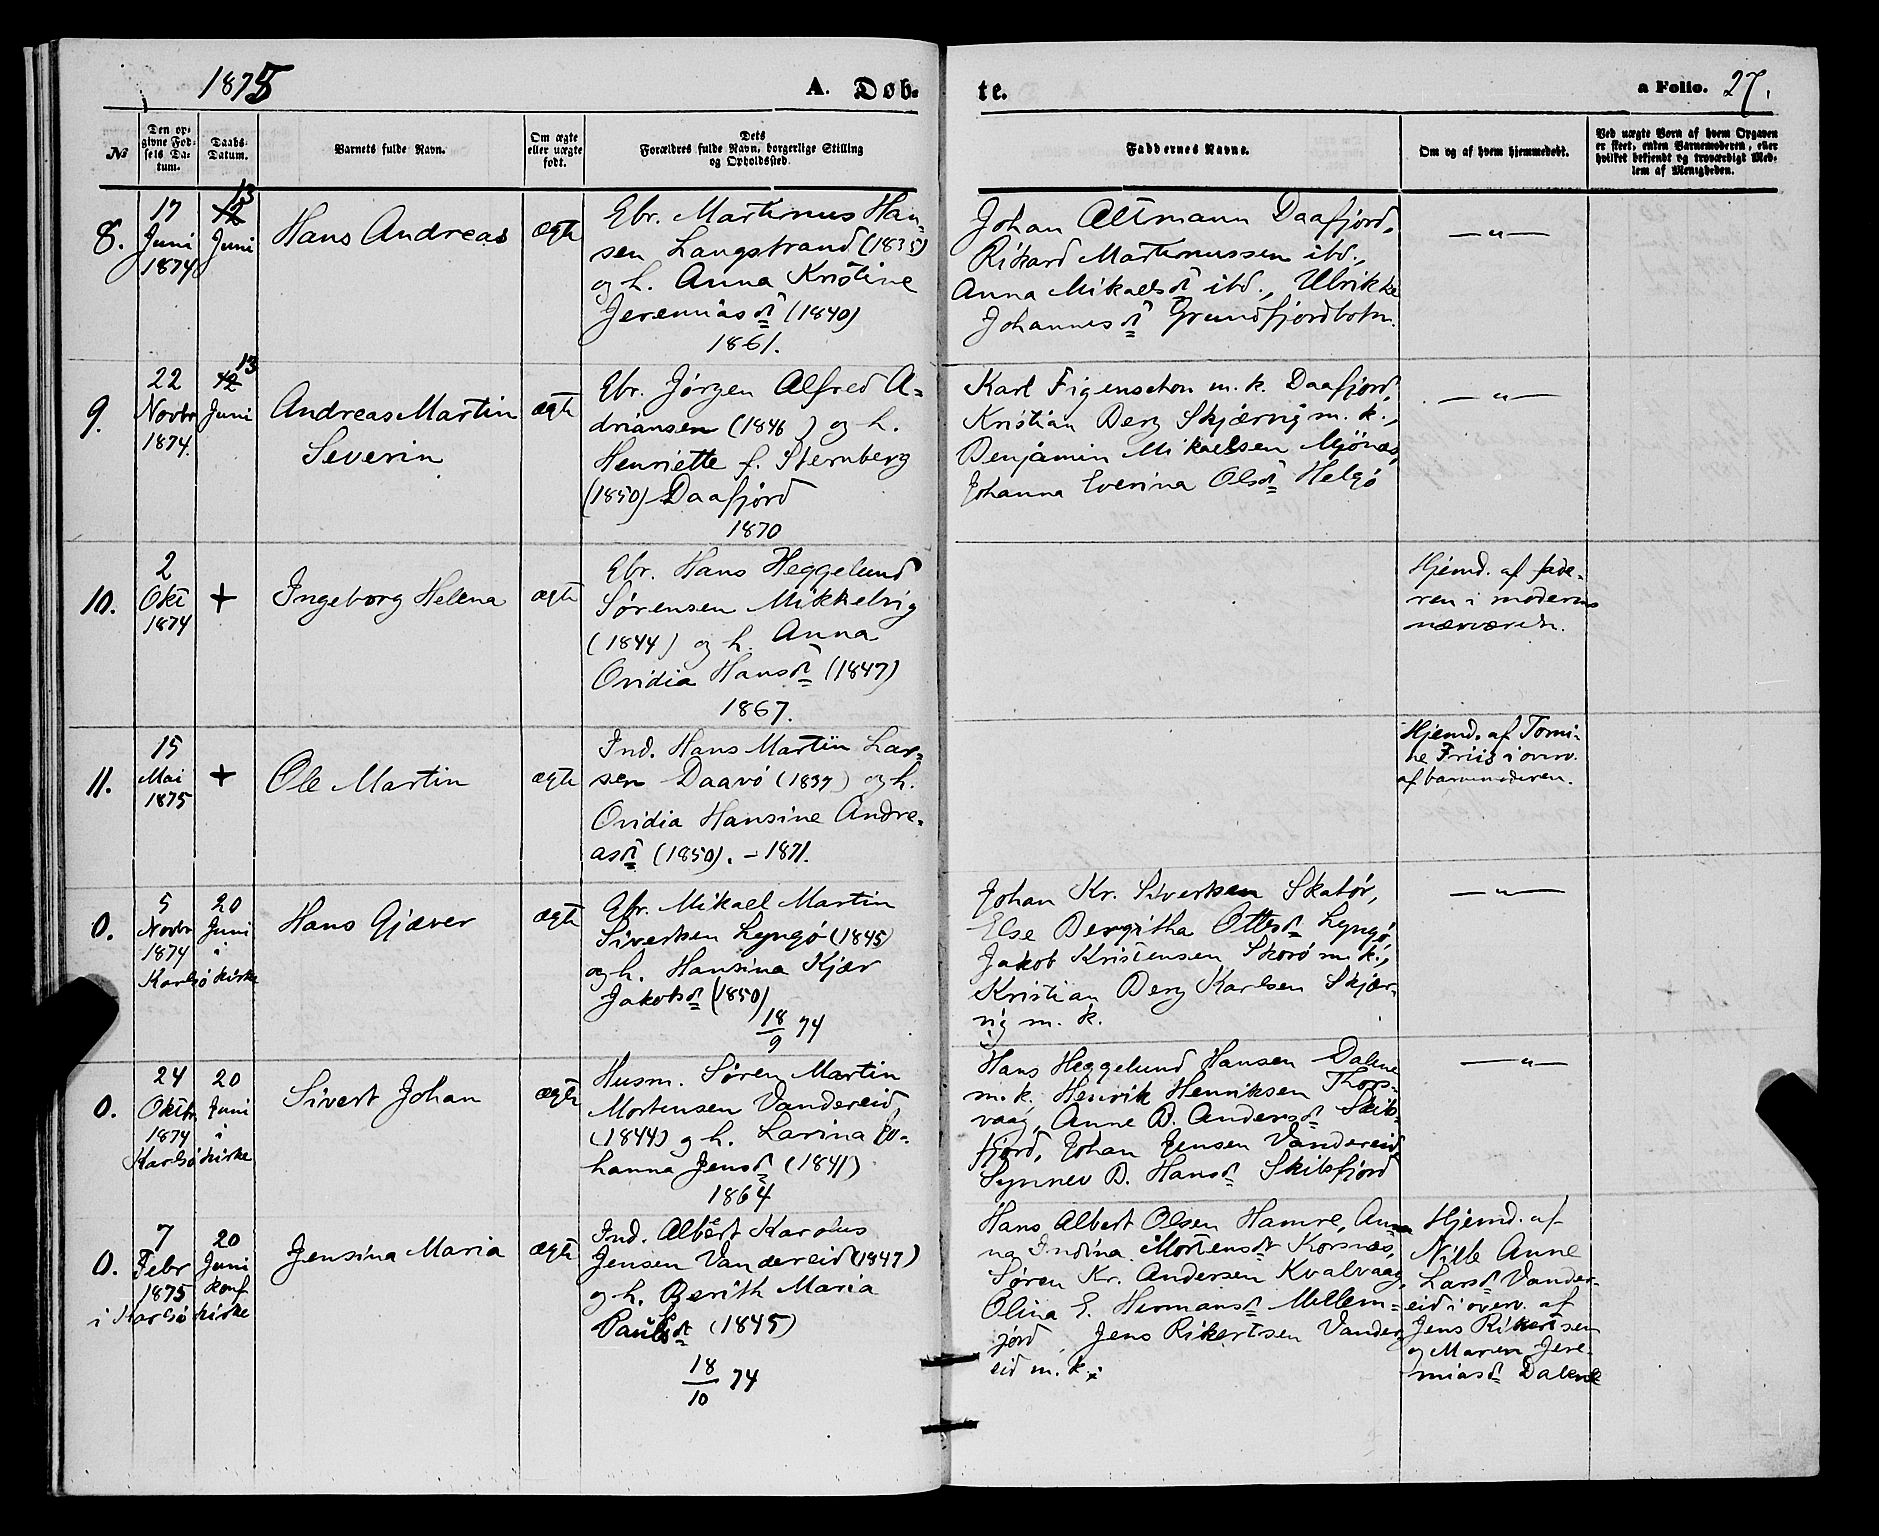 1875
A. Døb-
te.
a Folio. 27.
№
Den op-
givne Fød-
sels Da-
tum.
Daabs-
Datum.
Barnets fulde Navn.
Om ægte
eller uægte
født.
Dets
Forældres fulde Navn, borgerlige Stilling
og Opholdssted.
Faddernes Navne.
Om og af hvem hjemmedøbt.
Ved uægte Børn af hvem Opgaven
er skeet, enten Barnemoderen, eller
hvilket bekjendt og troværdigt Med-
lem af Menigheden.
8.
17
Juni
1874
13
12
Juni
Hans Andreas
ægte
Ebr. Martinus Han-
sen Langstrand (1835)
og h. Anna Kristine
Jeremiasd (1840)
1861.
Johan Altmann Daafjord,
Rikard Martinussen ibd.,
Anna Mikaelsd ibd., Ulrikke
Johannesd Grundfjordbotn.
— " —
9.
22
Novbr
1874.
13
12
Juni
Andreas Martin
Severin
ægte
Ebr. Jørgen Alfred A-
driansen (1846) og h.
Henriette f. Sternberg
(1850) Daafjord
1870
Karl Figenschou m. k. Daafjord,
Kristian Berg Skjærvig m. k.,
Benjamin Mikaelsen Mjønæs,
Johanna Everina Olsd Helgø
— " —
10.
2
Okt
1874
+
Ingeborg Helena
ægte
Ebr. Hans Heggelund
Sørensen Mikkelvig
(1844) og h. Anna
Ovidia Hansd (1847)
1867.
Hjemd. af fade-
ren i moderens
nærværelse.
11.
15
Mai
1875
+
Ole Martin
ægte
Ind. Hans Martin Lar-
sen Daavø (1837) og h.
Ovidia Hansine Andre-
asd (1850). – 1871.
Hjemd. af Tomi-
ne Friis i overv.
af barnemoderen.
0.
5
Novbr
1874
20
Juni
i
Karlsø kirke
Hans Gjæver
ægte
Ebr. Mikael Martin
Sivertsen Lyngø (1845)
og h. Hansina Kjær
Jakobsd (1850)
18/9 74
Johan Kr. Sivertsen Skatør,
Else Bergitha Ottesd Lyngø,
Jakob Kristensen Skorø m. k.,
Kristian Berg Karlsen Skjær-
vig m. k.
— " —
0.
24
Oktbr
1874
20
Juni
i
Karlsø kirke
Sivert Johan
ægte
Husm. Søren Martin
Mortensen Vandereid,
(1844) og h. Larina Jo-
hanna Jensd (1841)
1864
Hans Heggelund Hansen Dalene
m. k. Henrik Henriksen Thors-
vaag, Anne B. Andersd Skibs-
fjord, Johan Jensen Vandereid,
Synnev B. Hansd Skibsfjord
— " —
0.
7
Febr
1875
20
Juni
konf
i Karlsø kirke
Jensina Maria
ægte
Ind. Albert Karolus
Jensen Vandereid (1847)
og h. Berith Maria
Paulsd (1845)
18/10 74
Hans Albert Olsen Hamre, An-
na Indina Mortensd Korsnæs,
Søren Kr. Andersen Kvalvaag,
Olina E. Hermansd Mellem-
jord Jens Rikertsen Vander-
eid m. k.;
Hjemd. af
Nille Anne
Larsd Vander-
eid i overv. af
Jens Rikertsen
og Maren Jere-
miasd Dalene